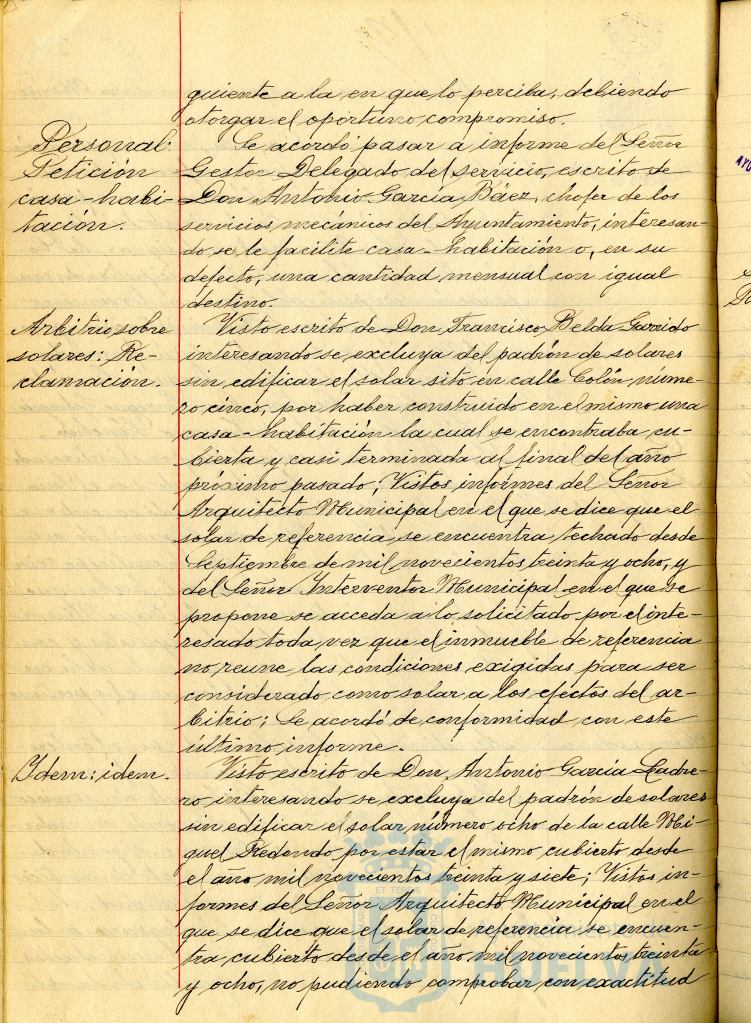 guiente a la en que lo perciba, debiendo
otorgar el oportuno compromiso.
Personal:
Petición
casa-habi-
tación.
Se acordó pasar a informe del Señor
Gestor Delegado del servicio, escrito de
Don Antonio García Báez, chofer de los
servicios mecánicos del Ayuntamiento, interesan-
do se le facilite casa-habitación o, en su
defecto, una cantidad mensual con igual
destino.
Arbitrio sobre
solares: Re-
clamación.
Visto escrito de Don Francisco Belda Garrido
interesando se excluya del padrón de solares
sin edificar el solar sito en calle Colón, núme-
ro cinco, por haber construido en el mismo una
casa-habitación la cual se encontraba cu-
bierta y casi terminada al final del año
próximo pasado; Vistos informes del Señor
Arquitecto Municipal en el que se dice que el
solar de referencia se encuentra techado desde
Septiembre de mil novecientos treinta y ocho, y
del Señor Interventor Municipal en el que se
propone se acceda a lo solicitado por el inte-
resado toda vez que el inmueble de referencia
no reune las condiciones exigidas para ser
considerado como solar a los efectos del ar-
bitrio; Se acordó de conformidad con este
último informe.
Idem: idem.
Visto escrito de Don Antonio García Ladre-
ro interesando se excluya del padrón de solares
sin edificar el solar número ocho de la calle Mi-
guel Redondo por estar el mismo cubierto desde
el año mil novecientos treinta y siete; Vistos in-
formes del Señor Arquitecto Municipal en el
que se dice que el solar de referencia se encuen-
tra cubierto desde el año mil novecientos treinta
y ocho, no pudiendo comprobar con exactitud
HUELVA